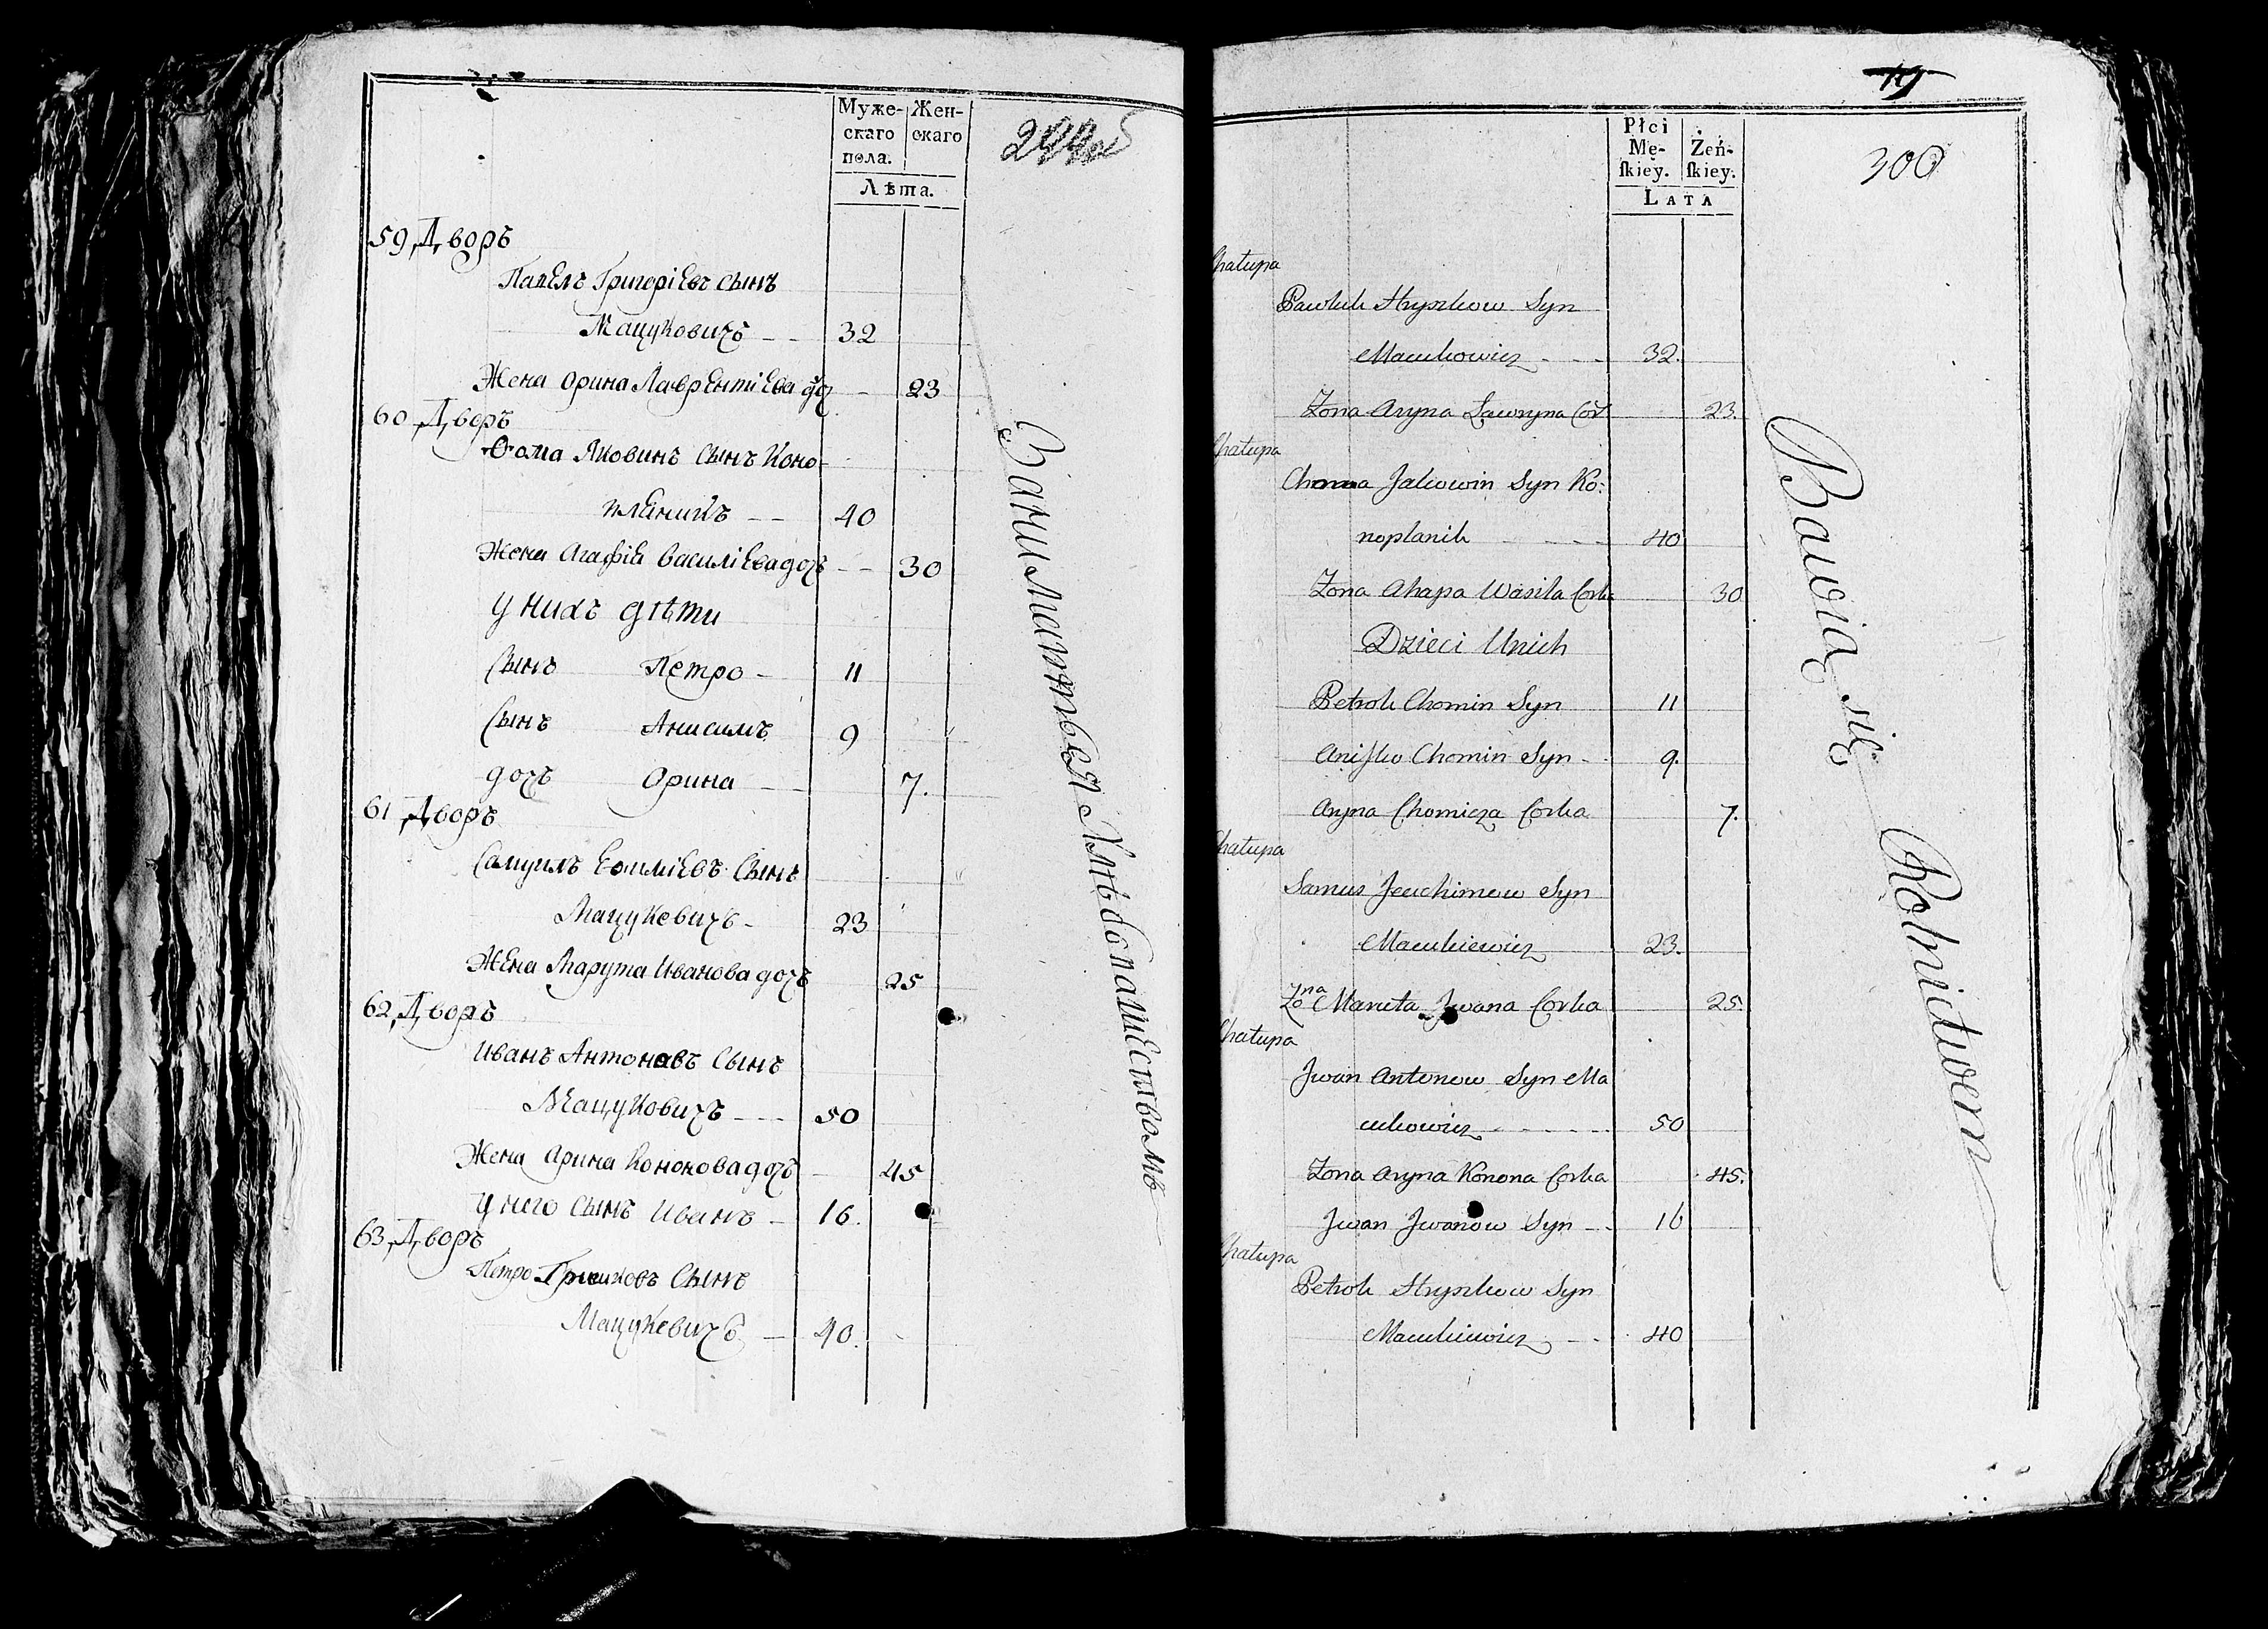 Муже- Жен-
скаго скаго
пола.
Лѣта.
299об
59 Дворъ
Павелъ Григоріевъ сынъ
Мацуковичъ - - 32
Жена Орина Лаврентіева доч - 23
60 Дворъ
Ѳома Яковинъ сынъ Коно-
пляникъ - - 40
Жена Агафія Василіева дочъ - - 30
У нихъ дѣти
Сынъ Петро - 11
Сынъ Анисимъ 9
дочъ Орина - 7.
61 Дворъ
Самуилъ Еѳиміевъ Сынъ
Мацукевичъ - 23
Жена Марута Иванова дочъ 25
62 Дворъ
Иванъ Антоновъ Сынъ
Мацуковичъ - - - 50
Жена Орина Кононова дочъ - 45
У него Сынъ Иванъ - 16.
63 Дворъ
Петро Гришковъ Сынъ
Мацукевичъ - 40.
Занимаются Хлѣбопашествомъ
19
Płci
Mę- Żeń-
ſkiey. ſkiey.
LATA
300
Chałupa
Pawluk Hryszkow Syn
Macukowicz - - - 32.
Zona Aryna Ławryna Cor 23.
Chałupa
Choma Jakowin Syn Ko:
noplanik - - - - 40
Zona Ahapa Wasila Corka 30
Dzieci Unich
Petrok Chomin Syn 11
Aniſko Chomin Syn - 9.
Aryna Chomicza Corka 7.
Chałupa
Samus Jeuchimow Syn
Macukiewicz 23.
Zona Maruta Jwana Corka 25.
Chałupa
Jwan Antonow Syn Ma
cukowicz - - - - - 50
Zona Aryna Konona Corka 45.
Jwan Jwanow Syn - - 16
Chałupa
Petrok Hryszkow Syn
Macukiewicz - - 40
Bawią się Rolnictwem